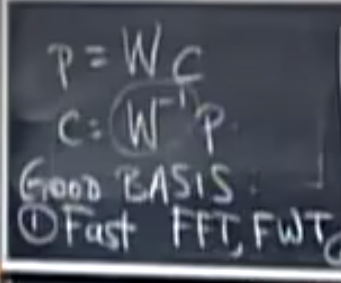 P = W C
C = W⁻¹ P.
GOOD BASIS:
① Fast FFT, FWT